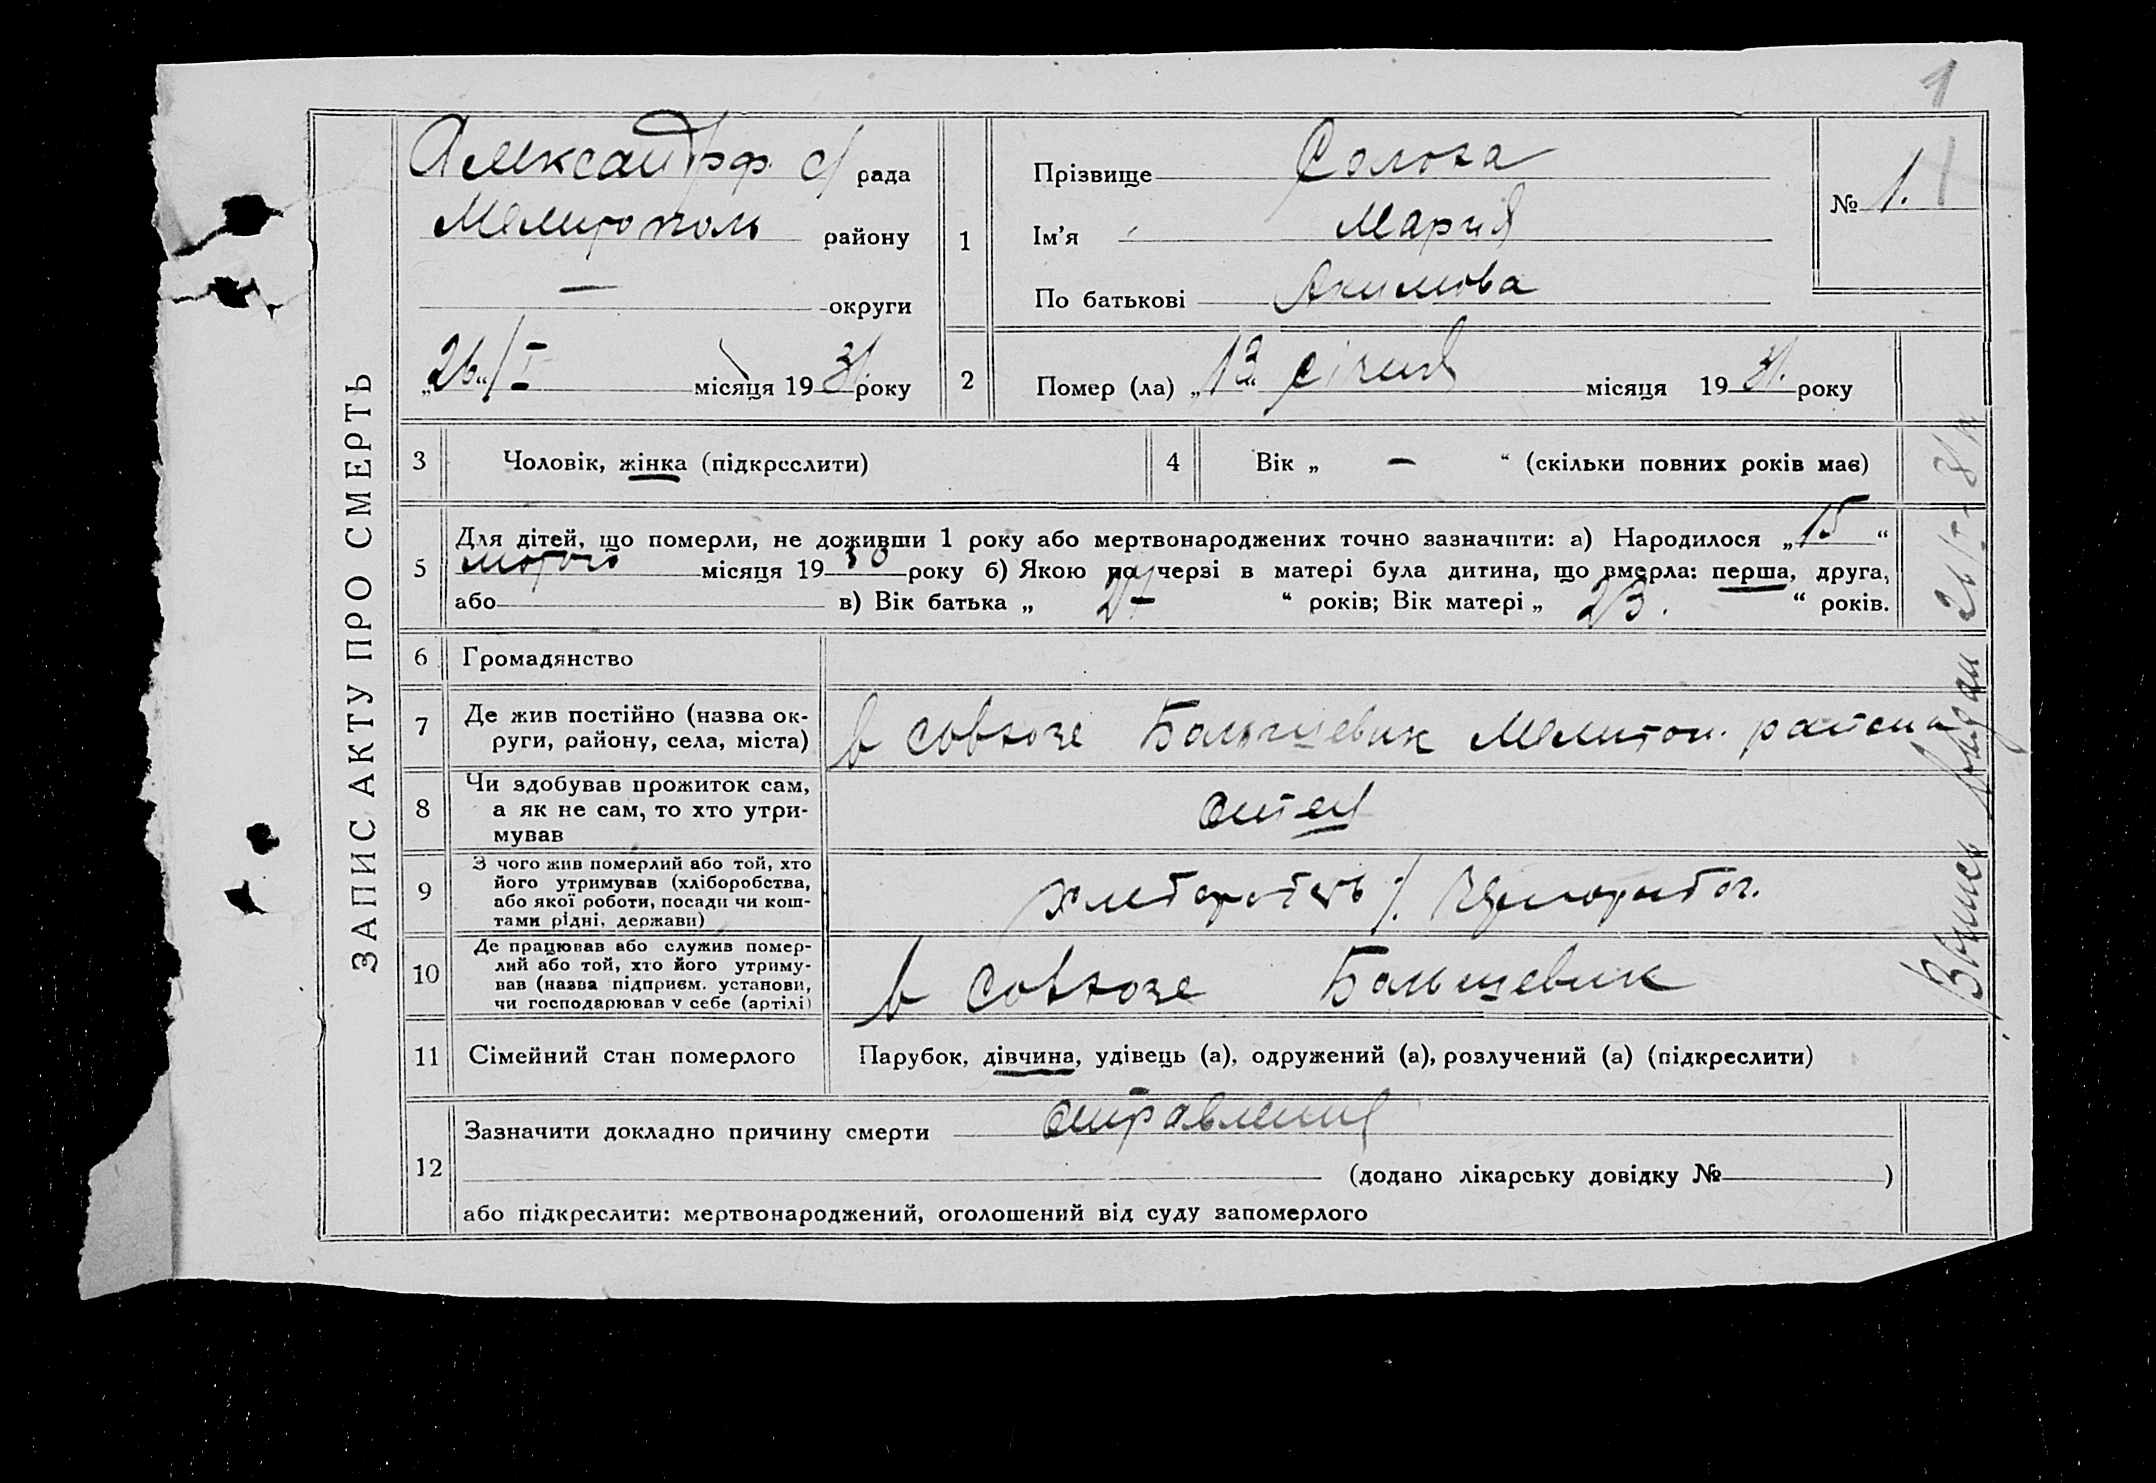 1
ЗАПИС АКТУ ПРО СМЕРТЬ
Александрф с/ рада
Мелитополь району
— округи
„26“/I місяця 1931 року
1
Прізвище Солоха
Ім'я Мария
По батькові Акимова
№ 1.
2
Помер (ла) „13“ січня місяця 1931. року
3
Чоловік, жінка (підкреслити)
4
Вік „ — “ (скільки повних років мав)
5
Для дітей, що померли, не доживши 1 року або мертвонароджених точно зазначити: а) Народилося „15“
лютого місяця 1930 року б) Якою по черзі в матері була дитина, що вмерла: перша, друга,
або в) Вік батька „ “ років; Вік матері „ 23. “ років.
6
Громадянство
7
Де жив постійно (назва ок-
руги, району, села, міста)
в совхозе Большевик Мелитоп. района
8
Чи здобував прожиток сам,
а як не сам, то хто утри-
мував
отец
9
З чого жив померлий або той, хто
його утримував (хліборобства,
або якої роботи, посади чи кош-
тами рідні, держави)
10
Де працював або служив помер-
лий або той, хто його утриму-
вав (назва підприєм. установи,
чи господарював у себе (артілі)
в Совхозе Большевик
11
Сімейний стан померлого
Парубок, дівчина, удівець (а), одружений (а), розлучений (а) (підкреслити)
12
Зазначити докладно причину смерти отравления
(додано лікарську довідку № )
або підкреслити: мертвонароджений, оголошений від суду запомерлого
Выпись выдан 26/I-31